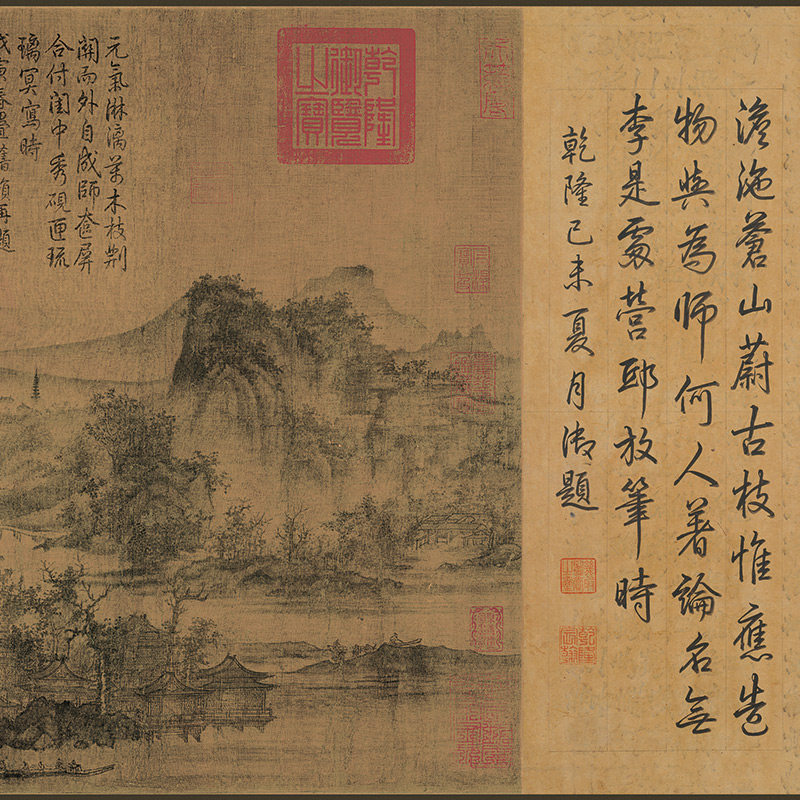 澹沲蒼山蔚古枝惟應造
物與為師何人著論名無
李是處營邱放筆時
乾隆己未夏月御題
乾隆宸翰
乾隆御覽之寶
元氣淋漓萬木枝荆
關而外自成師奩屏
合付閨中秀硯匣琉
璃冥寫時
戊寅春疊舊韻再題